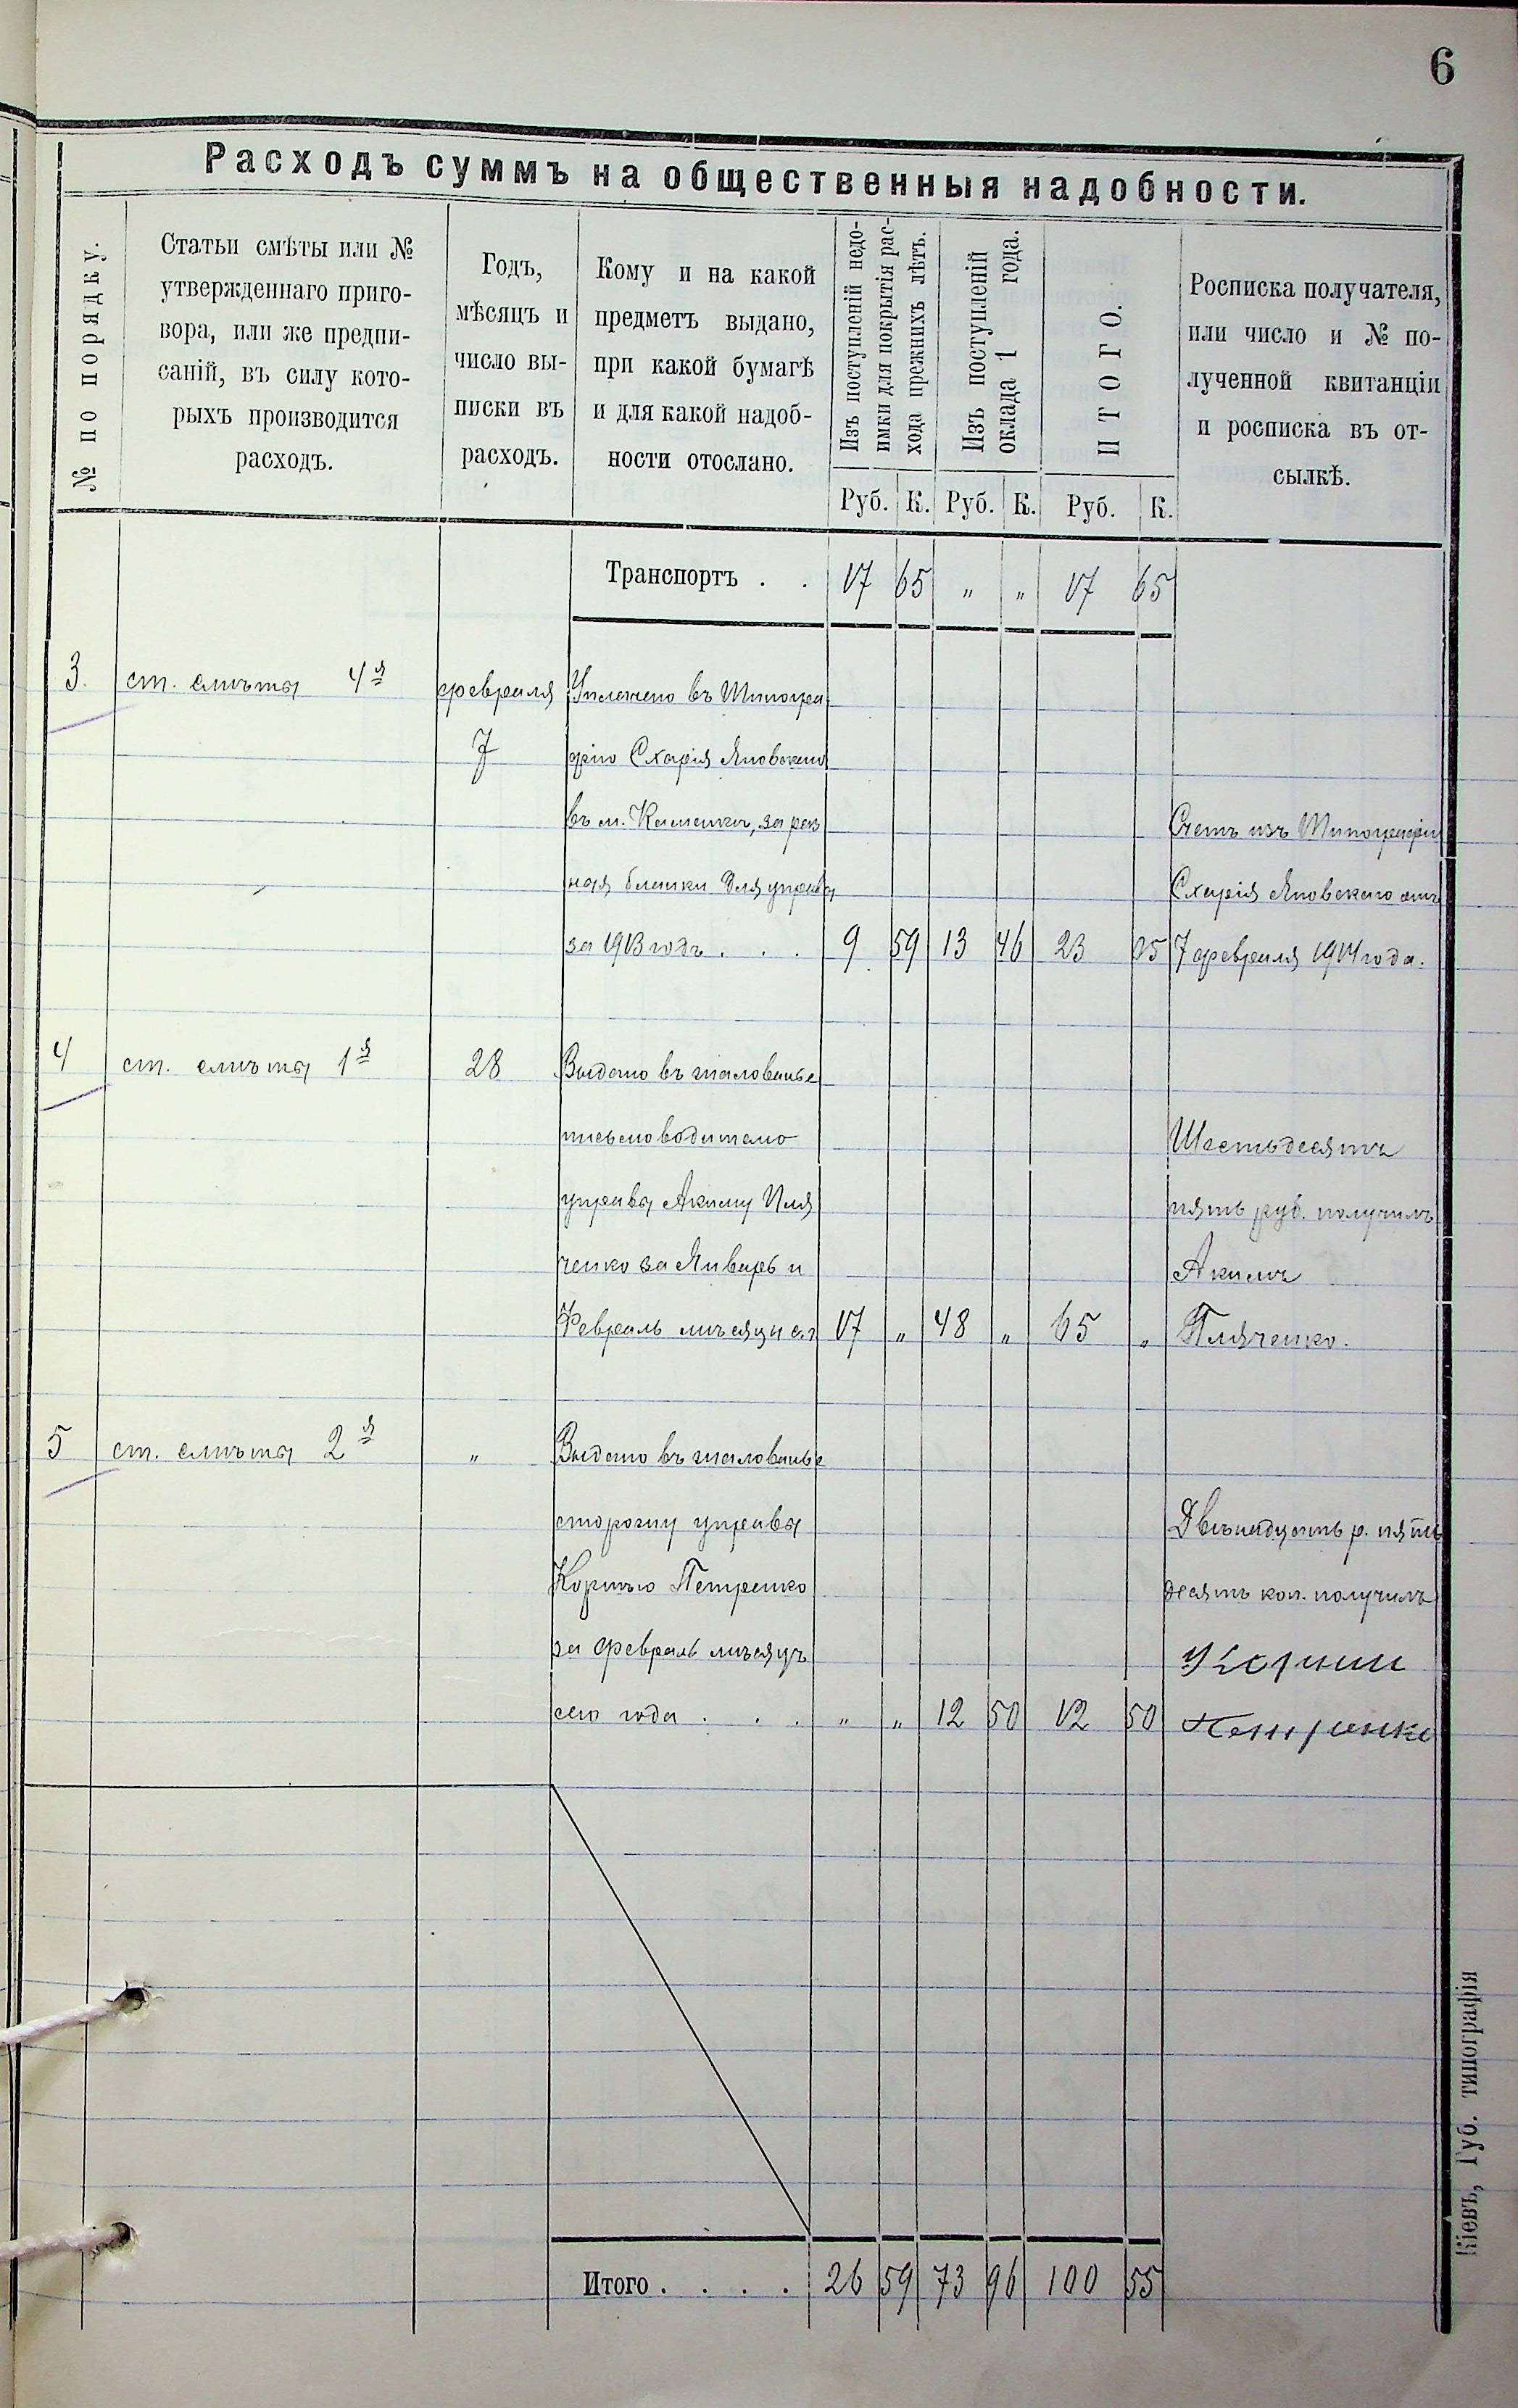 6
Расходъ суммъ на общественныя надобности.
№ по порядку.
Статьи смѣты или №
утвержденнаго приго-
вора, или же предпи-
саній, въ силу кото-
рыхъ производится
расходъ.
Годъ,
мѣсяцъ и
число вы-
писки въ
расходъ.
Кому и на какой
предметъ выдано,
при какой бумагѣ
и для какой надоб-
ности отослано.
Изъ поступленій недо-
имки для покрытія рас-
хода прежнихъ лѣтъ.
Изъ поступленій
оклада 1 года.
ИТОГО.
Росписка получателя,
или число и № по-
лученной квитанціи
и росписка въ от-
сылкѣ.
Руб. К. Руб. К. Руб. К.
Транспортъ . . 17 65 „ „ 17 65
3. ст. смѣты 4я февраля Уплачено въ Типогра
7 фію Схарія Яновскаго
въ м. Каменкѣ, за раз Счетъ изъ Типографіи
ная бланки для управы Схарія Яновскаго отъ
за 1913 годъ . . . 9 59 13 46 23 05 7 февраля 1914 года.
4 ст. смѣты 1я 28 Выдано въ жалованье
письмоводителю Шестьдесятъ
управы Акиму Пля пять руб. получилъ
ченко за Январь и Акимъ
Февраль мѣсяцы с.г 17 „ 48 „ 65 „ Пляченко.
5 ст. смѣты 2я „ Выдано въ жалованье
сторожу управы Двѣнадцать р. пять
Корнѣю Петренко десятъ коп. получилъ
за Февраль мѣсяцъ Корнии
сего года . . . „ „ 12 50 12 50 Петренко
Итого . . . . 26 59 73 96 100 55
Кіевъ, Губ. типографія